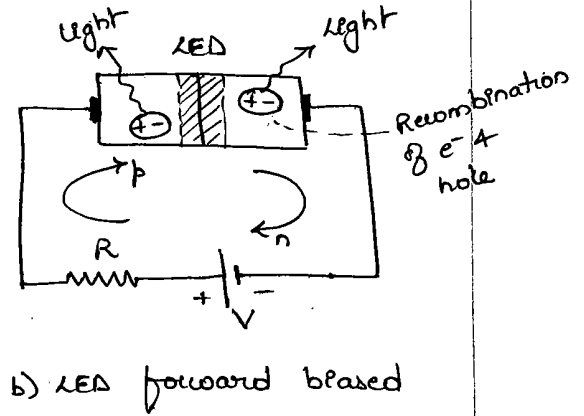 Light
LED
Light
+-
+-
Recombination
of e⁻ &
hole
p
n
R
+ -
V
b) LED forward biased